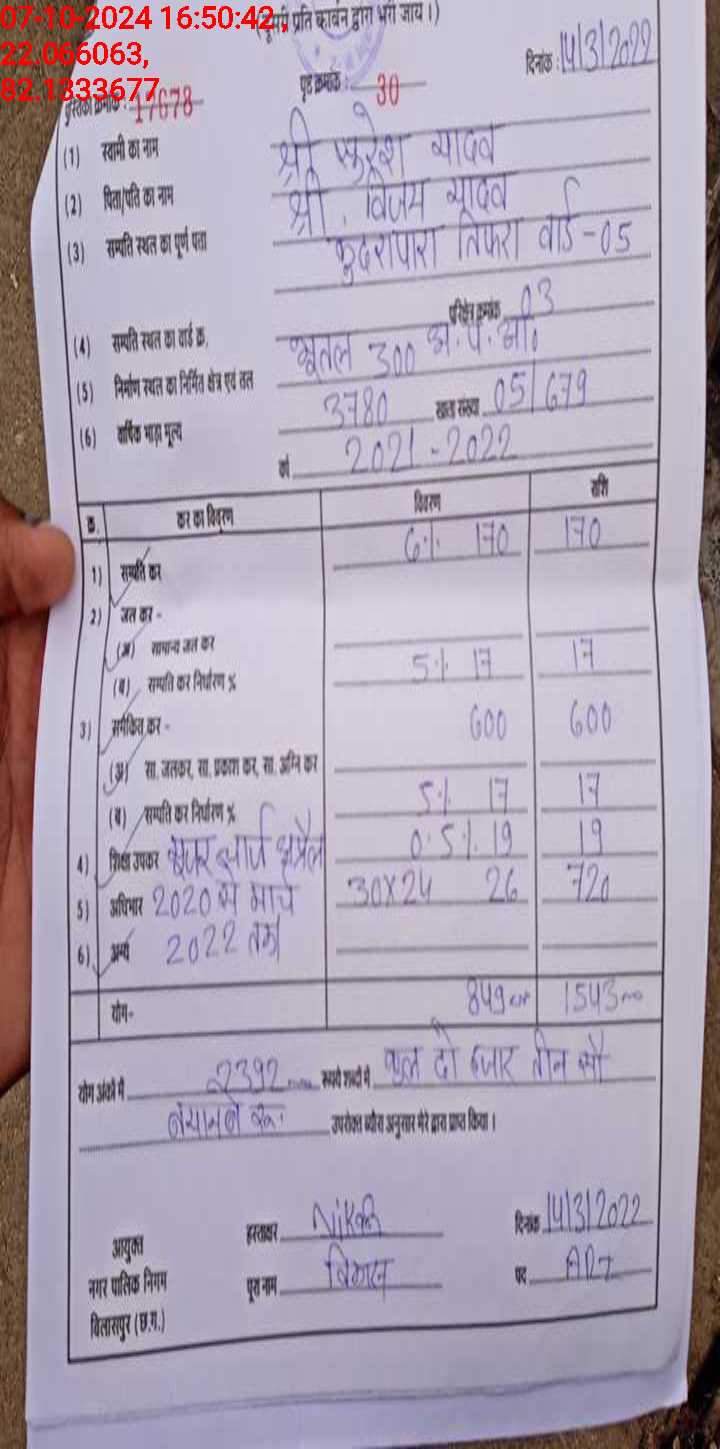 07-10-2024 16:50:42
22.066063,
82.1333677
प्रति कार्बन द्वारा भरी जाय।)
दिनांक : 14/3/2022
पुस्तिका क्रमांक : 17678 पृष्ठ क्रमांक : 30
(1) स्वामी का नाम श्री सुरेश यादव
(2) पिता/पति का नाम श्री. विजय यादव
(3) सम्पत्ति स्थल का पूर्ण पता कुदरापारा तिफरा वार्ड-05
(4) सम्पत्ति स्थल का वार्ड क्र. परिक्षेत्र क्रमांक 03
(5) निर्माण स्थल का निर्मित क्षेत्र एवं तल भूतल 300
(6) वार्षिक भाड़ा मूल्य 3780 खाता संख्या 05/679
वर्ष 2021-2022
क्र. कर का विवरण विवरण राशि
1) सम्पत्ति कर 6% 170 170
2) जल कर -
(अ) सामान्य जल कर
(ब) सम्पत्ति कर निर्धारण % 5% 17 17
3) समेकित कर - 600 600
(अ) सा. जलकर, सा. प्रकाश कर, सा. अग्नि कर
(ब) सम्पत्ति कर निर्धारण % 5% 17 17
4) शिक्षा उपकर यूजर चार्ज अप्रैल 0.5% 19 19
5) अधिभार 2020 से मार्च 30x24 26 720
6) अन्य 2022 तक
योग- 849 1543
योग अंकों में 2392 रूपये शब्दों में कुल दो हजार तीन सौ
बयानबे रू. उपरोक्त ब्यौरा अनुसार मेरे द्वारा प्राप्त किया।
हस्ताक्षर दिनांक 14/3/2022
आयुक्त
नगर पालिक निगम पूरा नाम पद
बिलासपुर (छ.ग.)